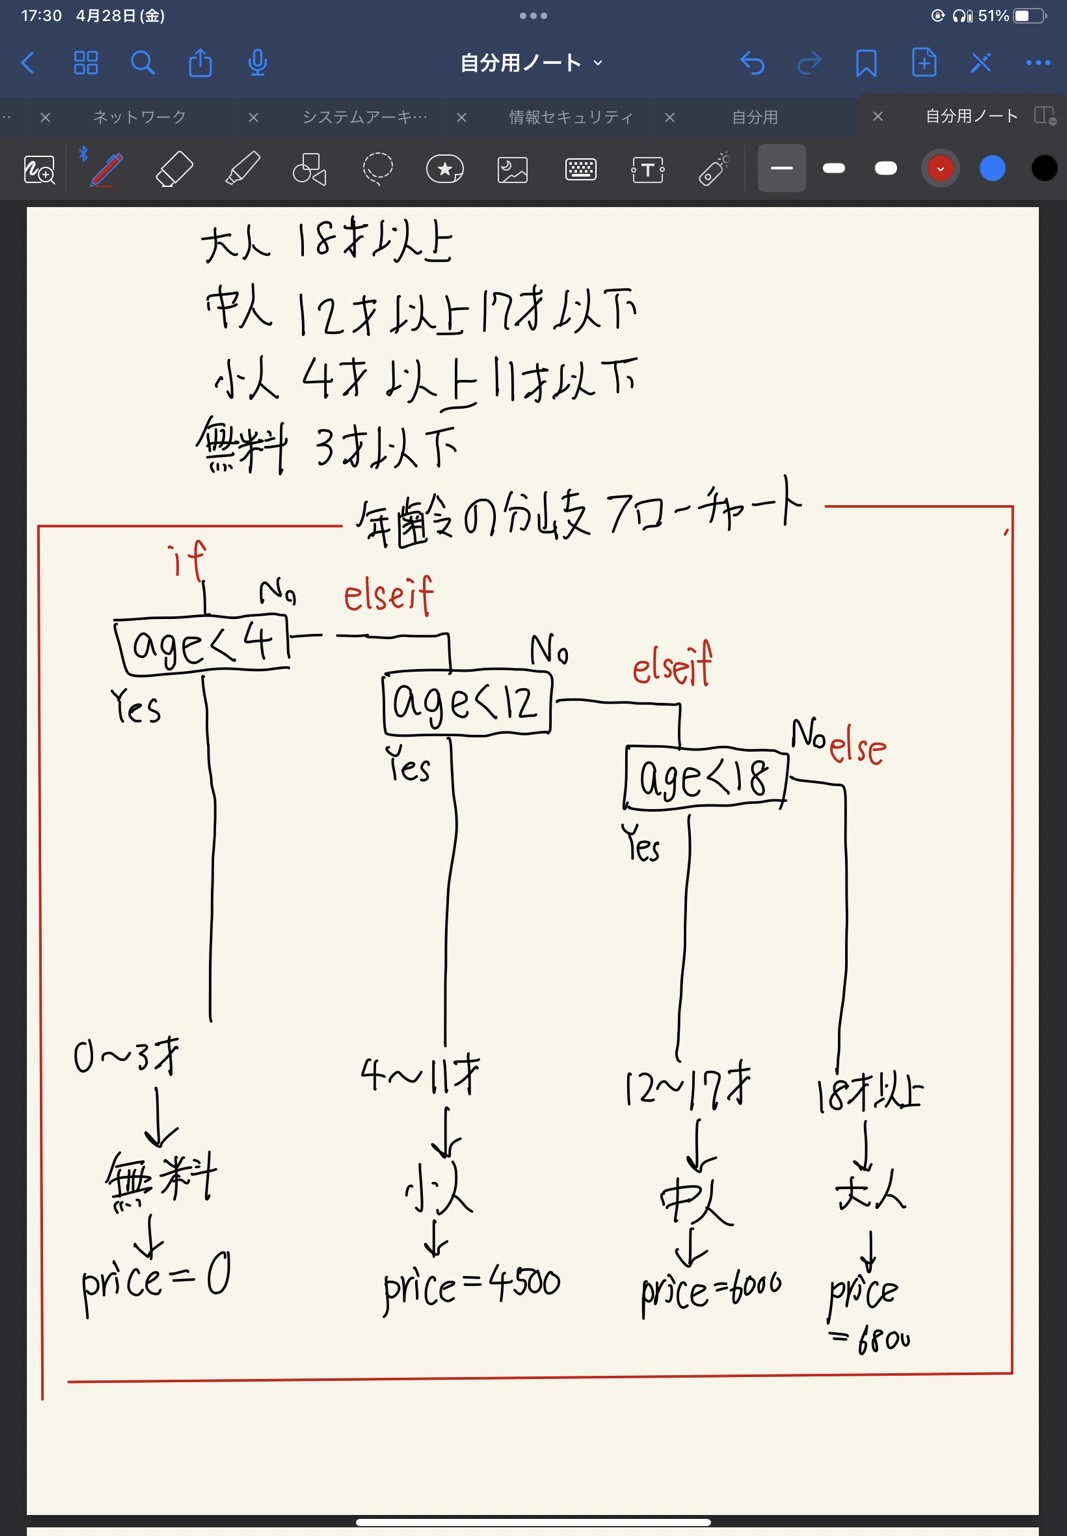 17:30 4月28日(金)
51%
自分用ノート
ネットワーク
システムアーキ…
情報セキュリティ
自分用
自分用ノート
T
大人 18才以上
中人 12才以上17才以下
小人 4才以上11才以下
無料 3才以下
年齢の分岐フローチャート
if
No
elseif
age<4
No
elseif
Yes
age<12
No
else
Yes
age<18
Yes
0〜3才
4〜11才
12〜17才
18才以上
無料
小人
中人
大人
price=0
price=4500
price=6000
price
=6800